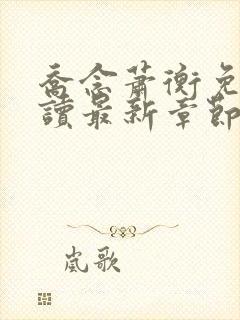 喬念蕭衡免
讀最新章節
嵐歌